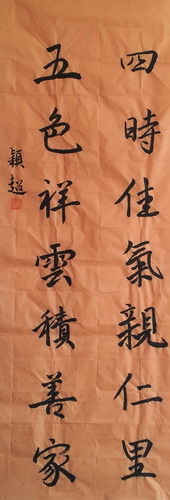 四時佳氣親仁里
五色祥雲積善家
穎超